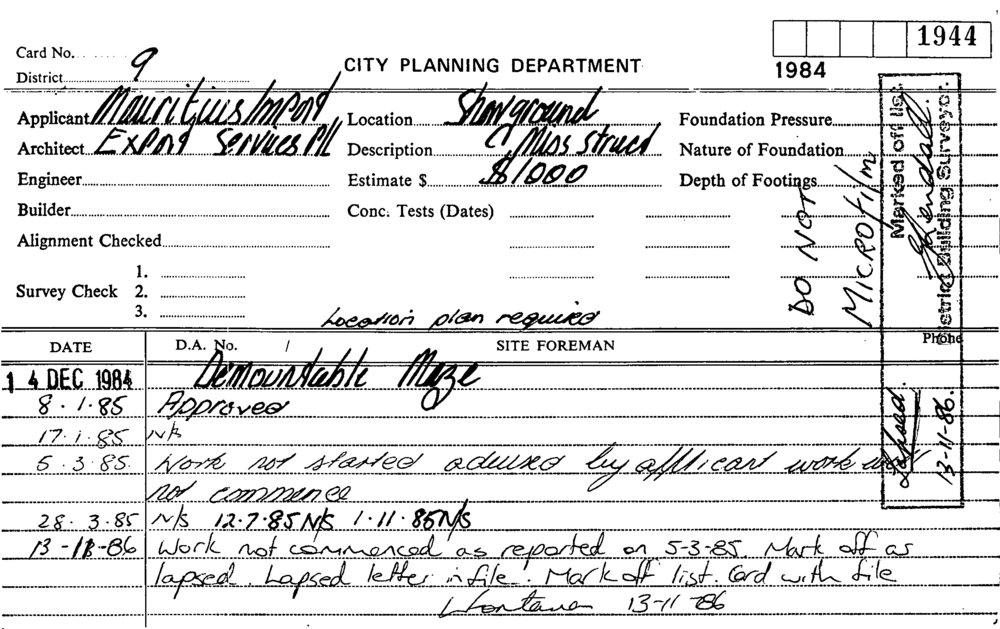 1944
1984
Card No. 9
District
CITY PLANNING DEPARTMENT
Applicant Mauritius Import
Architect Export Services P/L
Engineer
Builder
Alignment Checked
Survey Check 1.
2.
3.
Location Showground
Description C Misc Struct
Estimate $ $1000
Conc. Tests (Dates)
Foundation Pressure
Nature of Foundation
Depth of Footings
DO NOT
MICROFILM
Marked off list
District Building Surveyor
Lapsed
13-11-86.
Location plan required
DATE D.A. No. / SITE FOREMAN Phone
14 DEC 1984 Demountable Maze
8.1.85 Approved
17.1.85 N/S
5.3.85. Work not started advised by applicant work
not commence
28.3.85 N/S 12.7.85 N/S 1.11.85 N/S
13-11-86 Work not commenced as reported on 5-3-85. Mark off as
lapsed. Lapsed letter in file. Mark off list. Card with file
13-11-86